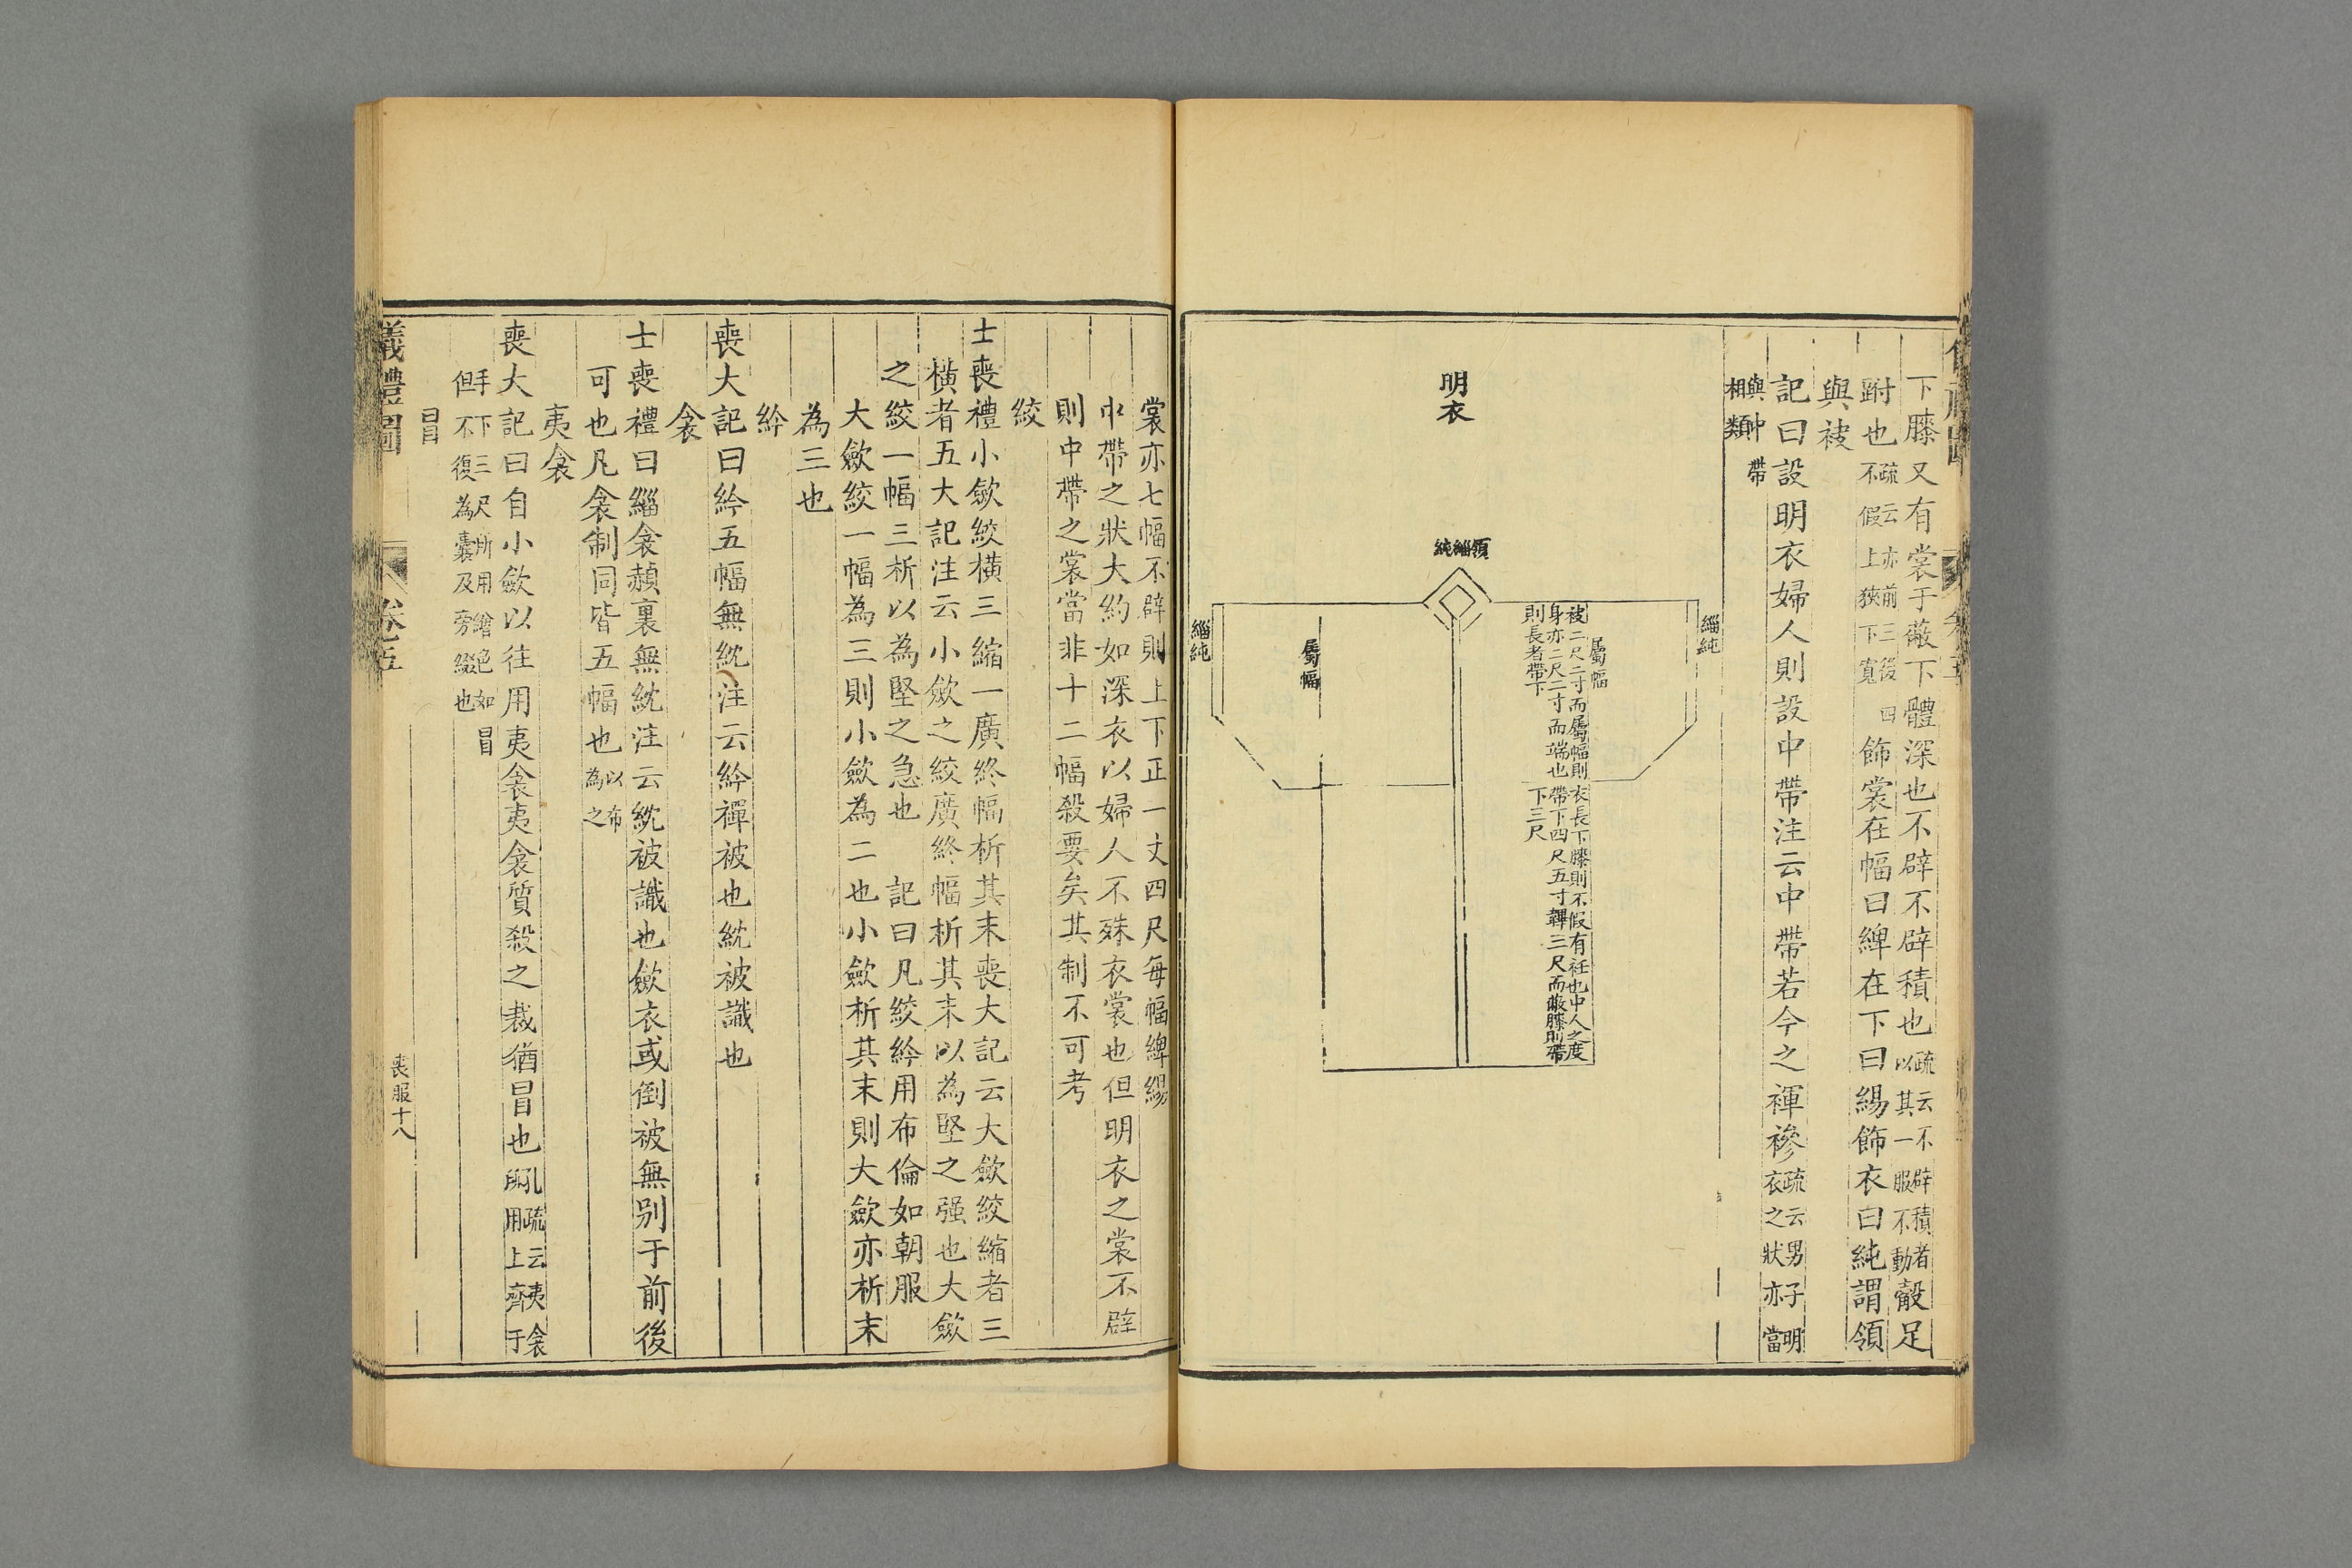 下膝又有裳于蔽下體深也不辟不辟積也疏云不辟積者以其一服不動觳足
跗也疏云亦前三後四不假上狹下寬飾裳在幅曰綼在下曰緆飾衣曰純謂領
與袂
記曰設明衣婦人則設中帶注云中帶若今之褌襂疏云男子明衣之狀亦當
與中帶相類
明衣
領緇純
緇純
屬幅
袂二尺二寸而屬幅則
身亦二尺二寸而端也
則長者帶下
衣長下膝則不假有衽也中人之度
帶下四尺五寸韠三尺而蔽膝則帶
下三尺
屬幅
緇純
裳亦七幅不辟則上下正一丈四尺每幅綼緆
中帶之狀大約如深衣以婦人不殊衣裳也但明衣之裳不辟
則中帶之裳當非十二幅殺要矣其制不可考
絞
士喪禮小斂絞橫三縮一廣終幅析其末喪大記云大斂絞縮者三
橫者五大記注云小斂之絞廣終幅析其末以為堅之强也大斂
之絞一幅三析以為堅之急也 記曰凡絞紟用布倫如朝服
大斂絞一幅為三則小斂為二也小斂析其末則大斂亦析末
為三也
紟
喪大記曰紟五幅無紞注云紟禪被也紞被識也
衾
士喪禮曰緇衾赬裏無紞注云紞被識也斂衣或倒被無别于前後
可也凡衾制同皆五幅也以布為之
夷衾
喪大記曰自小斂以往用夷衾夷衾質殺之裁猶冒也孔疏云夷衾所用上齊于
手下三尺所用繒色如冒但不復為囊及旁綴也
冒
儀禮圖
卷五
喪服十八